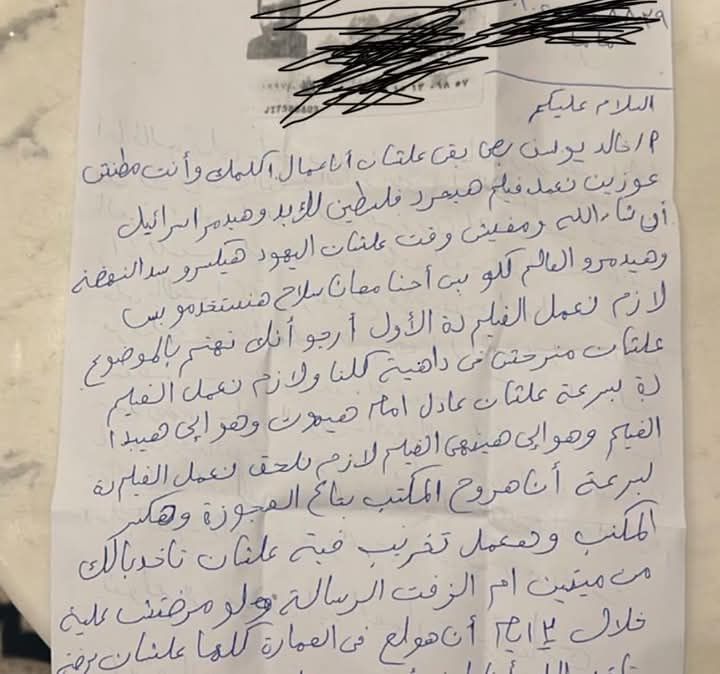 السلام عليكم
م/ خالد يوسف بص بقى علشان أنا عمال اكلمك وأنت مطنش
عوزين نعمل فيلم هيحرر فلسطين للأبد وهيدمر اسرائيل
أن شاء الله ومفيش وقت علشان اليهود هيكسرو سد النهضة
وهيدمرو العالم كلو بس أحنا معانا سلاح هنستخدمو بس
لازم نعمل الفيلم دة الأول أرجو أنك تهتم بالموضوع
علشان منرحش فى داهية كلنا ولازم نعمل الفيلم
دة بسرعة علشان عادل امام هيموت وهو إلى هيبدأ
الفيلم وهو إلى هينهى الفيلم لازم نلحق نعمل الفيلم دة
بسرعة أنا هروح المكتب بتاع العجوزة وهكسر
المكتب وهعمل تخريب فية علشان تاخد بالك
من ميتين ام الزفت الرسالة ولو مردتش علية
خلال ٢ ايام أنا هولع فى العمارة كلها علشان